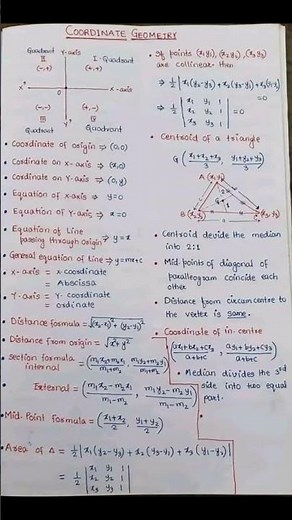 COORDINATE GEOMETRY
Quadrant
II
(-,+)
Y-axis
I-Quadrant
(+,+)
X'
O
X-axis
(-,-)
III
Quadrant
Y'
(+,-)
IV
Quadrant
• Coordinate of origin ⇒ (0,0)
• Cordinate on X-axis ⇒ (x,0)
• Cordinate on Y-axis ⇒ (0,y)
• Equation of X-axis ⇒ y=0
• Equation of Y-axis ⇒ x=0
• Equation of Line
passing through origin ⇒ y=x
• General equation of line ⇒ y=mx+c
• X-axis = x coordinate
= Abscissa
• Y-axis = Y-coordinate
= ordinate
• Distance formula = √(x₂-x₁)² + (y₂-y₁)²
• Distance from origin = √x²+y²
• section formula
internal = (m₁x₂+m₂x₁/m₁+m₂, m₁y₂+m₂y₁/m₁+m₂)
External = (m₁x₂-m₂x₁/m₁-m₂, m₁y₂-m₂y₁/m₁-m₂)
• Mid-Point formula = (x₁+x₂/2, y₁+y₂/2)
• Area of Δ = ½|x₁(y₂-y₃)+x₂(y₃-y₁)+x₃(y₁-y₂)|
= ½ |x₁ y₁ 1|
|x₂ y₂ 1|
|x₃ y₃ 1|
• If points (x₁y₁), (x₂y₂), (x₃y₃)
are collinear then
⇒ ½|x₁(y₂-y₃)+x₂(y₃-y₁)+x₃(y₁-y₂)|
=0
⇒ ½ |x₁ y₁ 1|
|x₂ y₂ 1| =0
|x₃ y₃ 1|
• Centroid of a triangle
G (x₁+x₂+x₃/3, y₁+y₂+y₃/3)
A (x₁,y₁)
2
G
1
B(x₂,y₂)
C(x₃,y₃)
• Centroid devide the median
into 2:1
• Mid-points of diagonal of
parallelogram coincide each
other
• Distance from circumcentre to
the vertex is same.
• Coordinate of in-centre
(ax₁+bx₂+cx₃/a+b+c, ay₁+by₂+cy₃/a+b+c)
• Median divides the 3rd
side into two equal
part.